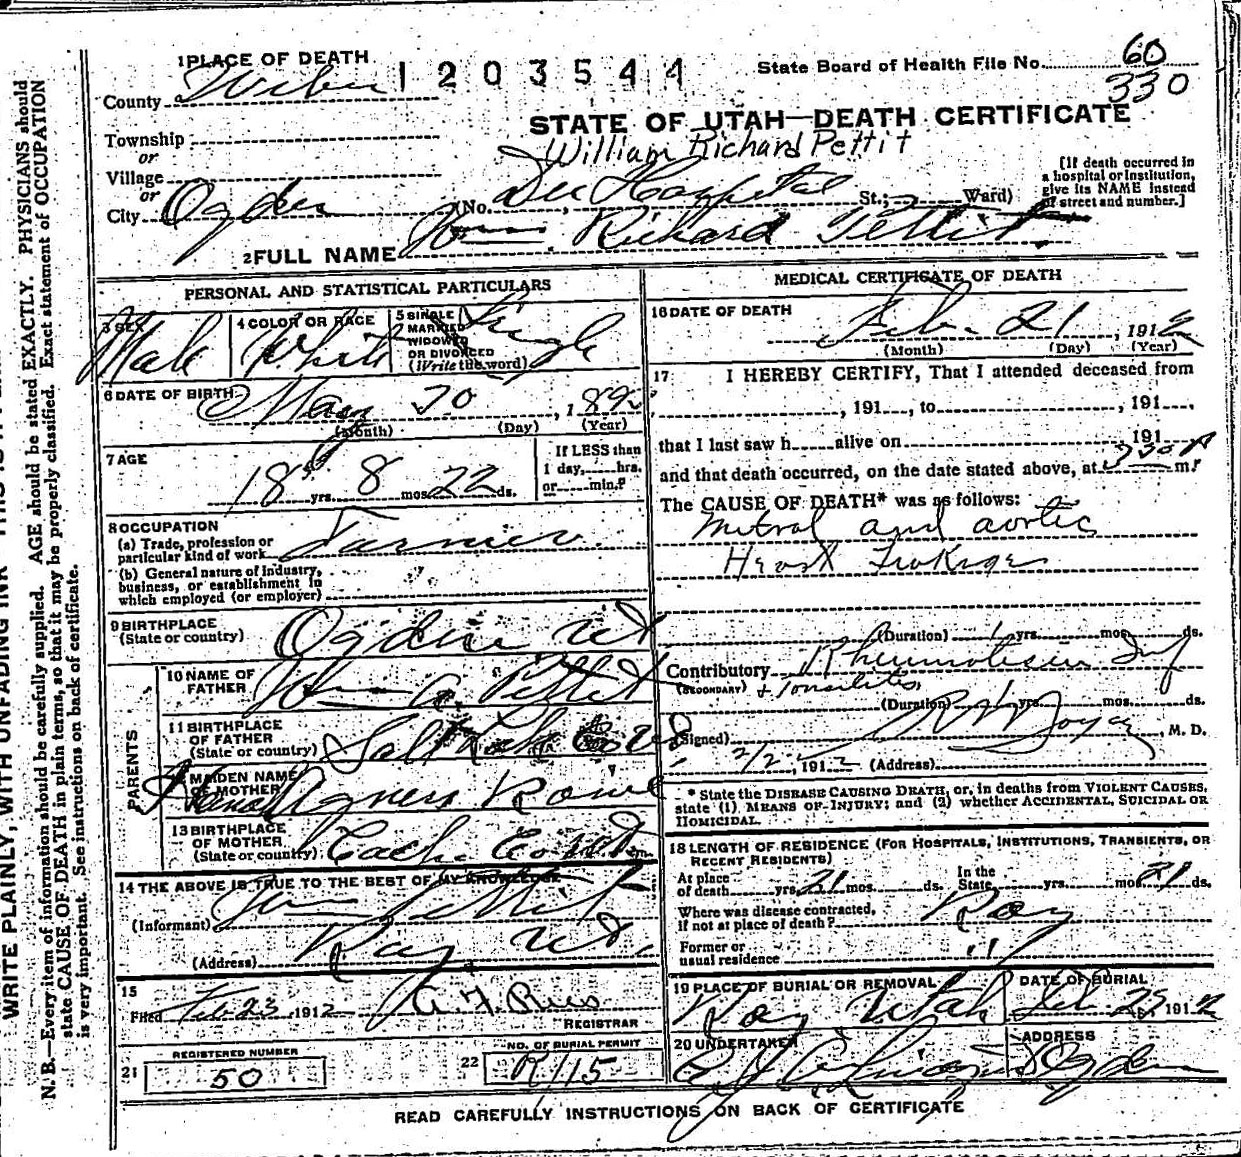 1 PLACE OF DEATH
1203544
State Board of Health File No. 60
330
County Weber
STATE OF UTAH—DEATH CERTIFICATE
Township
or
William Richard Pettit
Village
or
City Ogden (No. Dee Hospital St.; Ward)
[If death occurred in
a hospital or institution,
give its NAME instead
of street and number.]
2 FULL NAME Richard Pettit
PERSONAL AND STATISTICAL PARTICULARS
3 SEX Male
4 COLOR OR RACE White
5 SINGLE
MARRIED
WIDOWED
OR DIVORCED
(Write the word) Single
6 DATE OF BIRTH
May , 189
(Month) (Day) (Year)
7 AGE
18 yrs. 8 mos. 22 ds.
If LESS than
1 day, hrs.
or min.?
8 OCCUPATION
(a) Trade, profession or
particular kind of work Farmer
(b) General nature of industry,
business, or establishment in
which employed (or employer)
9 BIRTHPLACE
(State or country) Ogden Ut
PARENTS
10 NAME OF
FATHER Pettit
11 BIRTHPLACE
OF FATHER
(State or country) Salt Lake
MAIDEN NAME
OF MOTHER Hannah Agness
13 BIRTHPLACE
OF MOTHER
(State or country) Cache
14 THE ABOVE IS TRUE TO THE BEST OF MY KNOWLEDGE
(Informant) Pettit
(Address) Roy Ut
15
Filed Feb 23 1912
REGISTRAR
21
REGISTERED NUMBER
50
22
NO. OF BURIAL PERMIT
R115
MEDICAL CERTIFICATE OF DEATH
16 DATE OF DEATH
Feb. 21, 1912
(Month) (Day) (Year)
17 I HEREBY CERTIFY, That I attended deceased from
, 191 , to , 191 ,
that I last saw h alive on 191
and that death occurred, on the date stated above, at m.
The CAUSE OF DEATH* was as follows:
Mitral and aortic
Heart
(Duration) 1 yrs. mos. ds.
Contributory Rheumatism
(SECONDARY) + Tonsilitis
(Duration) 1 yrs. mos. ds.
(Signed) , M. D.
, 1912 (Address)
* State the DISEASE CAUSING DEATH, or, in deaths from VIOLENT CAUSES,
state (1) MEANS OF INJURY; and (2) whether ACCIDENTAL, SUICIDAL OR
HOMICIDAL.
18 LENGTH OF RESIDENCE (FOR HOSPITALS, INSTITUTIONS, TRANSIENTS, OR
RECENT RESIDENTS)
At place
of death yrs. 21 mos. ds.
In the
State yrs. mos. 21 ds.
Where was disease contracted,
if not at place of death? Roy
Former or
usual residence "
19 PLACE OF BURIAL OR REMOVAL
Roy Utah
DATE OF BURIAL
1912
20 UNDERTAKER
ADDRESS
Ogden
READ CAREFULLY INSTRUCTIONS ON BACK OF CERTIFICATE
N. B.—Every item of information should be carefully supplied. AGE should be stated EXACTLY. PHYSICIANS should
state CAUSE OF DEATH in plain terms, so that it may be properly classified. Exact statement of OCCUPATION
is very important. See instructions on back of certificate.
WRITE PLAINLY, WITH UNFADING INK